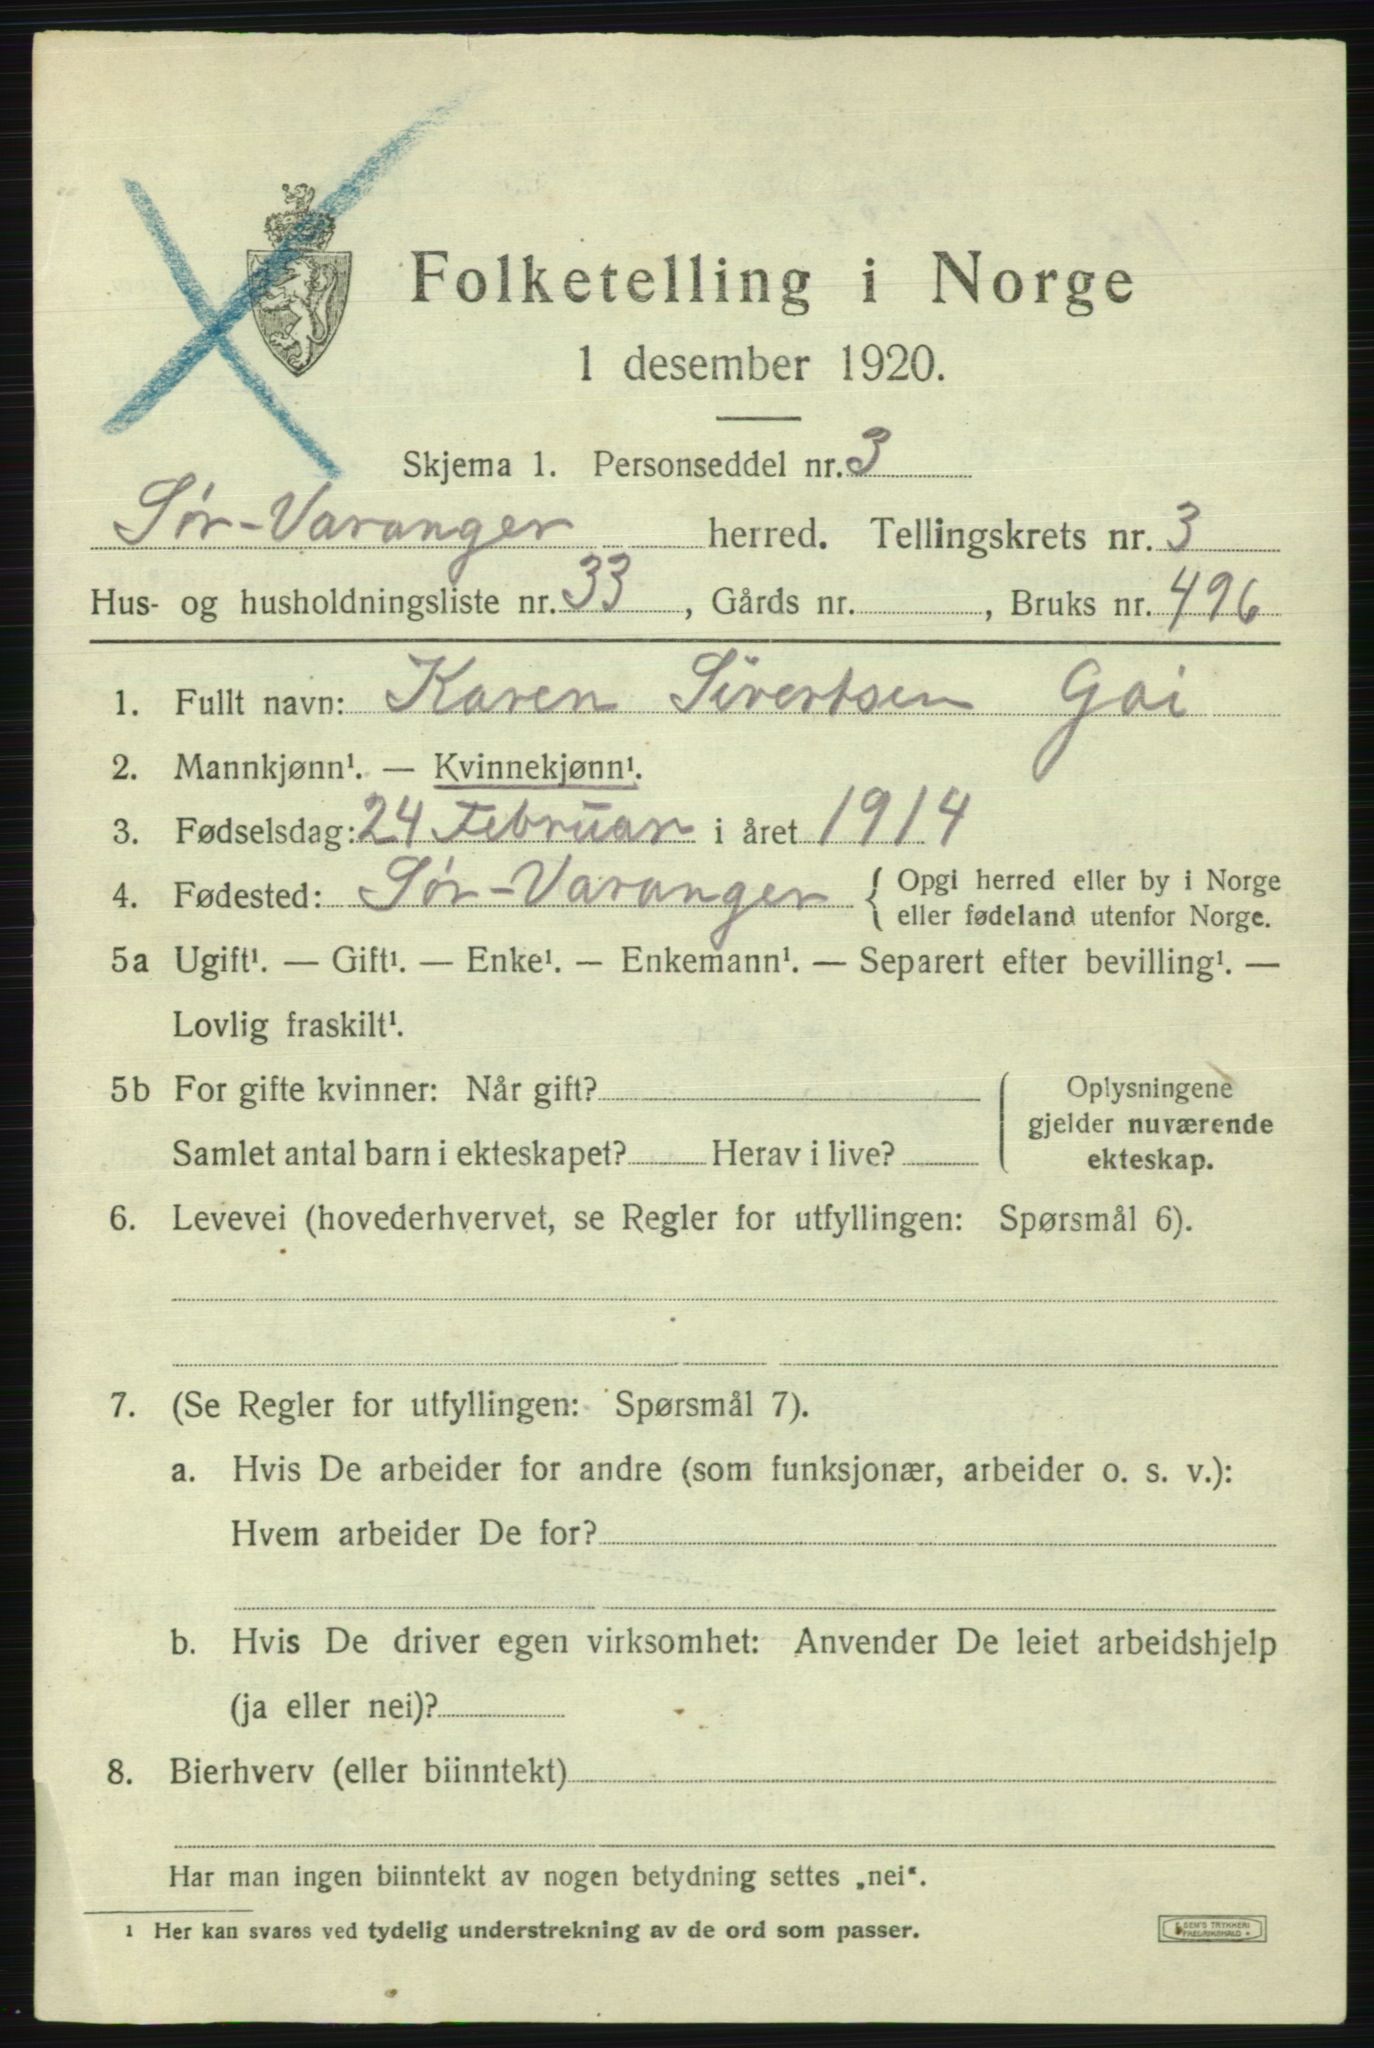 Folketelling i Norge
1 desember 1920.
Skjema 1. Personseddel nr. 3
Sør-Varanger herred. Tellingskrets nr. 3
Hus- og husholdningsliste nr. 33, Gårds nr. , Bruks nr. 496
1. Fullt navn: Karen Sivertsen Gai
2. Mannkjønn¹. — Kvinnekjønn¹.
3. Fødselsdag: 24 Februar i året 1914
4. Fødested: Sør-Varanger { Opgi herred eller by i Norge
eller fødeland utenfor Norge.
5a Ugift¹. — Gift¹. — Enke¹. — Enkemann¹. — Separert efter bevilling¹. —
Lovlig fraskilt¹.
5b For gifte kvinner: Når gift?
Samlet antal barn i ekteskapet? Herav i live?
Oplysningene
gjelder nuværende
ekteskap.
6. Levevei (hovederhvervet, se Regler for utfyllingen: Spørsmål 6).
7. (Se Regler for utfyllingen: Spørsmål 7).
a. Hvis De arbeider for andre (som funksjonær, arbeider o. s. v.):
Hvem arbeider De for?
b. Hvis De driver egen virksomhet: Anvender De leiet arbeidshjelp
(ja eller nei)?
8. Bierhverv (eller biinntekt)
Har man ingen biinntekt av nogen betydning settes „nei“.
¹ Her kan svares ved tydelig understrekning av de ord som passer.
SEM'S TRYKKERI
FREDRIKSHALD